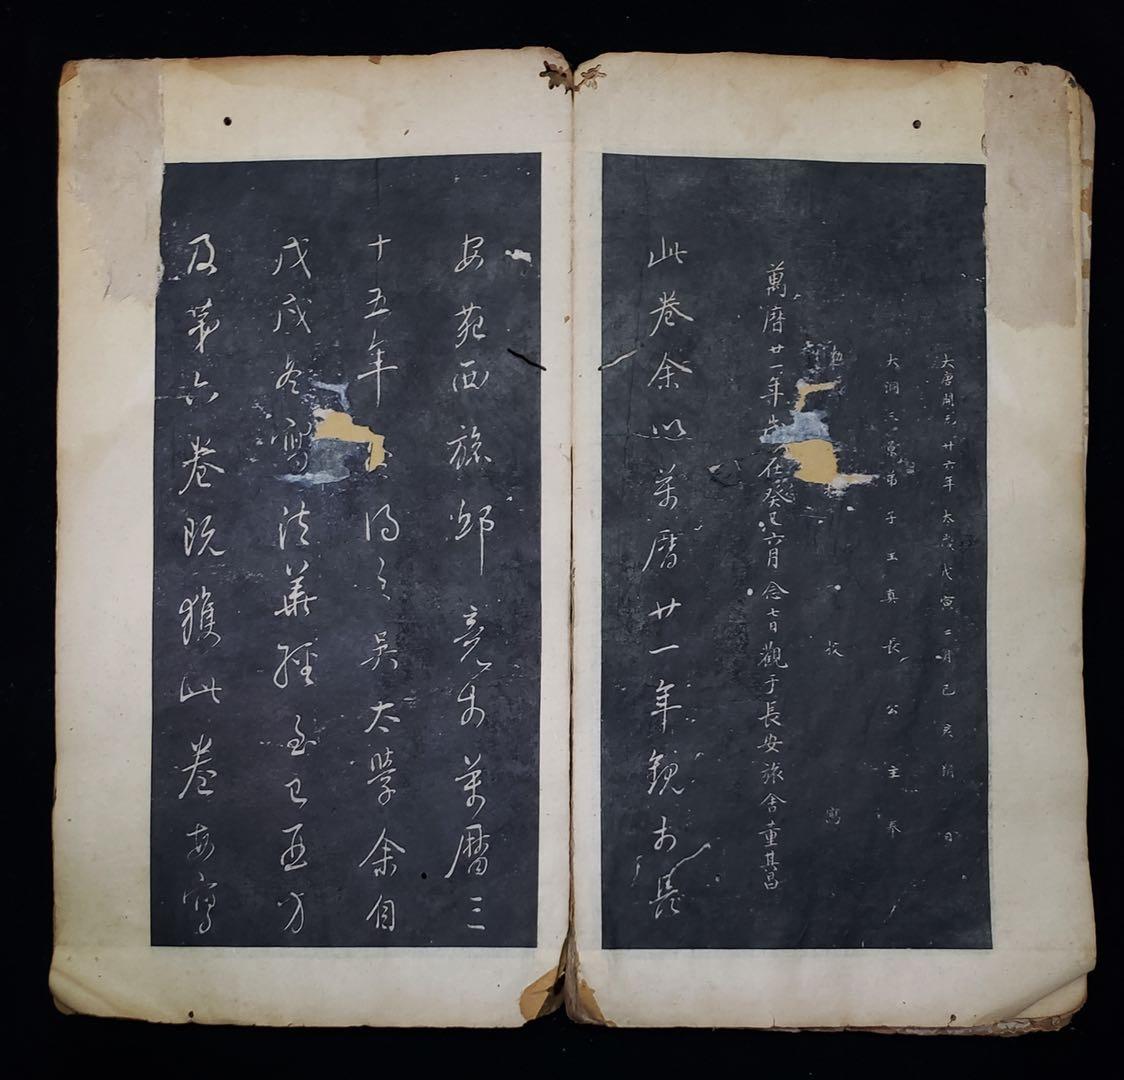 大唐開元廿六年太歲戊寅二月己亥朔日
大洞三景弟子玉真長公主奉
敕
寫
萬曆廿一年歲在癸巳六月念七日觀于長安旅舍董其昌
此卷余以萬曆廿一年觀於長
安苑西旅邸竟於萬曆三
十五年得之吳太學余自
戊戌冬寫法華經至丁酉方
及第六卷既獲此卷每寫